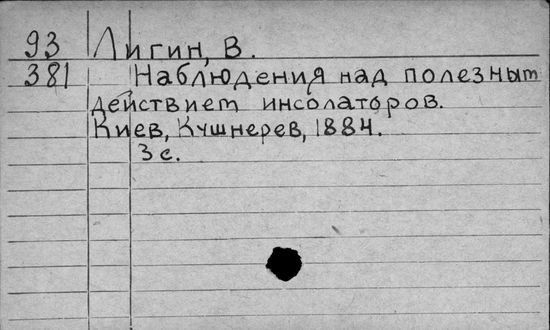 93 Лигин, В.
381 Наблюдения над полезным
действием инсолаторов.
Киев, Кушнерев, 1884.
3 с.